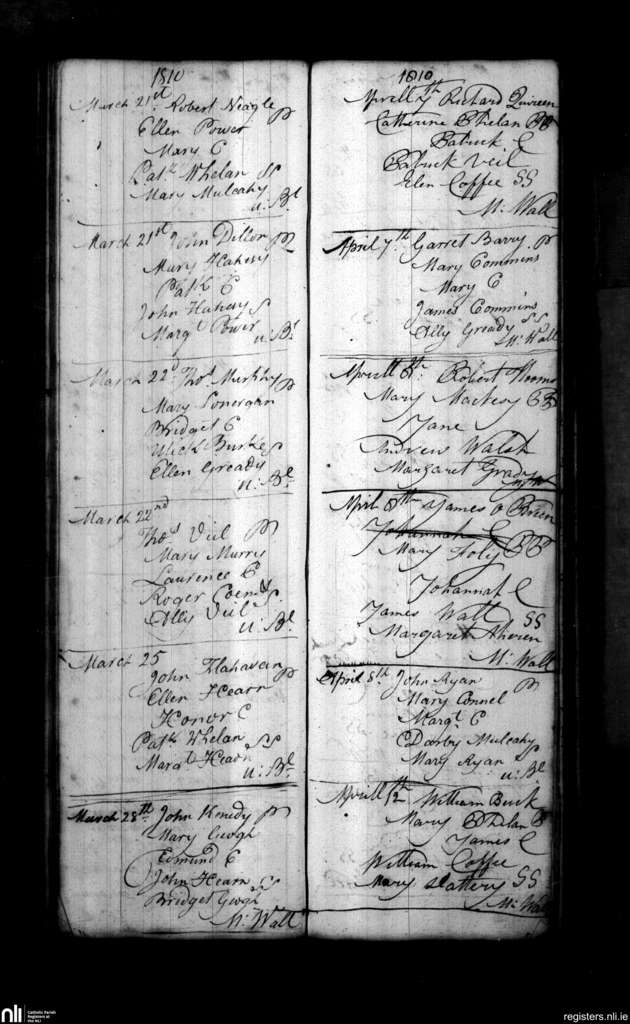 1810
March 21st Robert Neagle P
Ellen Power
Mary C
Patk Whelan SS
Mary Mulcahy
u: Bl
March 21st John Dillon P
Mary Flahevy
Patk C
John Flahevy S
Margt Power S
u: Bl
March 22d Thos Murphy P
Mary Lonergan
Bridget C
Ulick Burke S
Ellen Gready
u: Bl
March 22nd
Thos Viel P
Mary Murry
Laurence C
Roger
Allis Viel S
u: Bl
March 25
John Flahavan P
Ellen Hearn
Honor C
Patk Whelan
Margt Hearn SS
u: Bl
March 28th John Kenedy P
Mary Geogh
Edmund C
John Hearn SS
Bridget Geogh
M: Wall
1810
Aprill 7th Richard
Catherine Phelan PP
Patrick C
Patrick Veil
Elen Coffee SS
M: Wall
April 7th Garret Barry P
Mary Commins
Mary C
James Commins
Ally Gready SS
M: Wall
Aprill 8th Robert
Mary Mackesy PP
Jane
Andrew Walsh
Margaret Grady
April 8th James O Brien
Johannah C
Mary Foly PP
Johannah C
James Wall SS
Margaret Aheren
M: Wall
April 8th John Ryan P
Mary Connel
Margt C
Darby Mulcahy
Mary Ryan SS
u: Bl
Aprill 12th William Burk
Mary Phelan P
James C
William Coffee
Mary Slattery SS
M: Wall
nli
Catholic Parish
Registers at
the NLI
registers.nli.ie